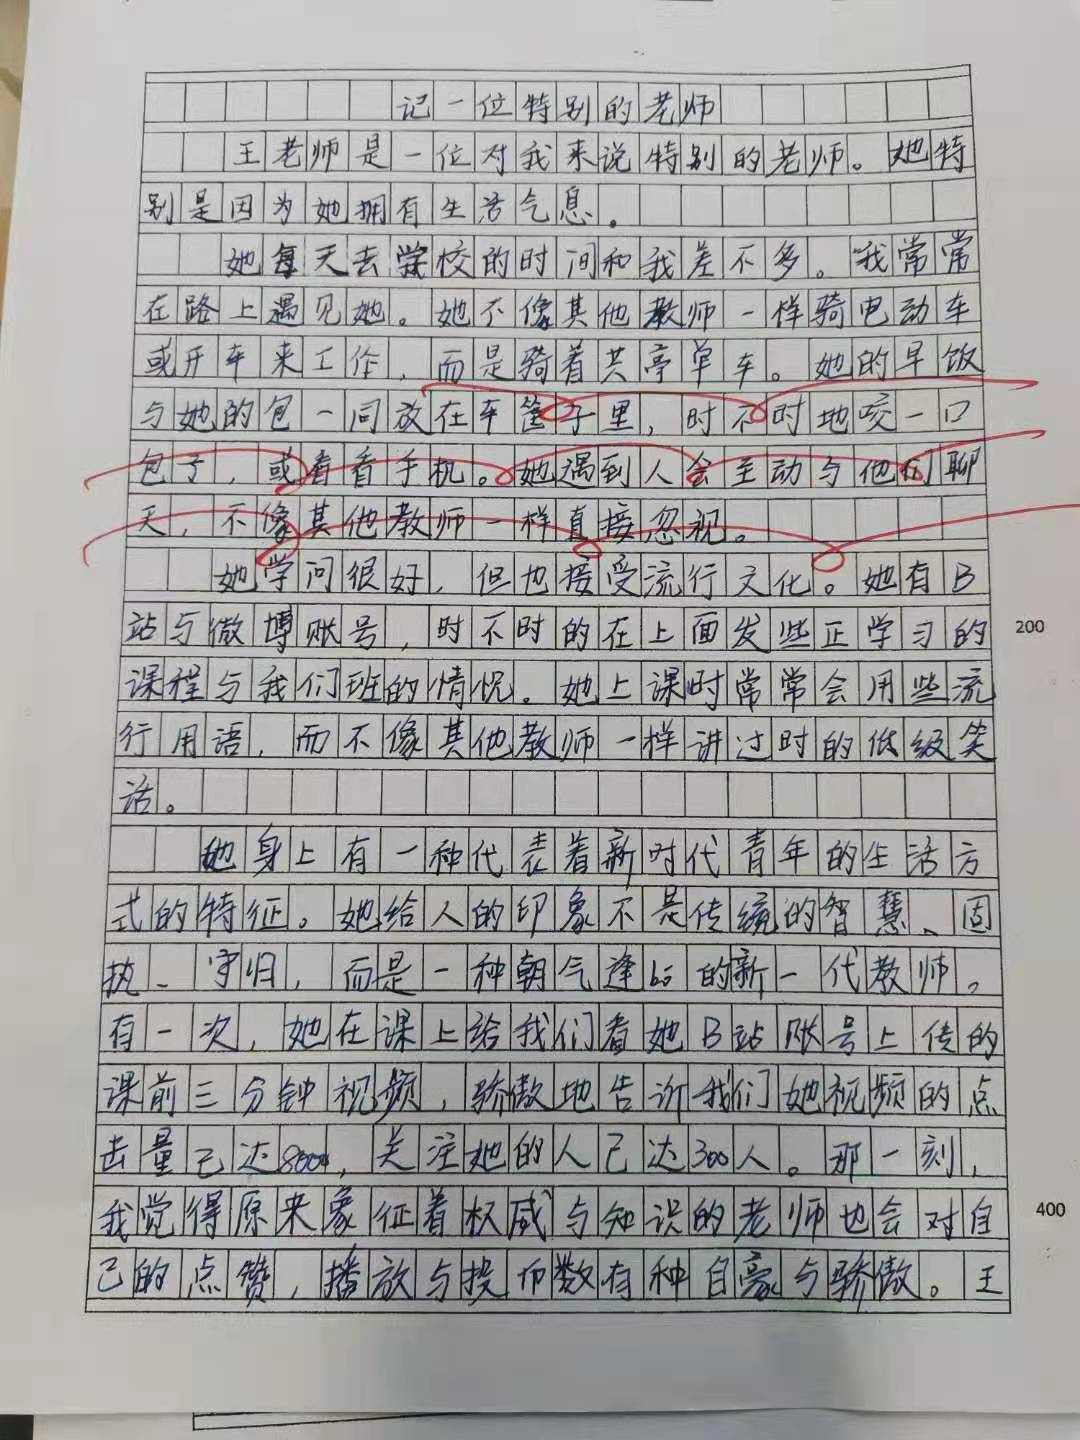 记一位特别的老师
王老师是一位对我来说特别的老师。她特
别是因为她拥有生活气息。
她每天去学校的时间和我差不多。我常常
在路上遇见她。她不像其他教师一样骑电动车
或开车来工作，而是骑着共享单车。她的早饭
与她的包一同放在车筐子里，时不时地咬一口
包子，或看看手机。她遇到人会主动与他们聊
天，不像其他教师一样直接忽视。
她学问很好，但也接受流行文化。她有B
站与微博账号，时不时的在上面发些正学习的
200
课程与我们班的情况。她上课时常常会用些流
行用语，而不像其他教师一样讲过时的低级笑
话。
她身上有一种代表着新时代青年的生活方
式的特征。她给人的印象不是传统的智慧、固
执、守旧，而是一种朝气逢勃的新一代教师。
有一次，她在课上给我们看她B站账号上传的
课前三分钟视频，骄傲地告诉我们她视频的点
击量已达8000，关注她的人已达300人。那一刻，
我觉得原来象征着权威与知识的老师也会对自
400
己的点赞，播放与投币数有种自豪与骄傲。王